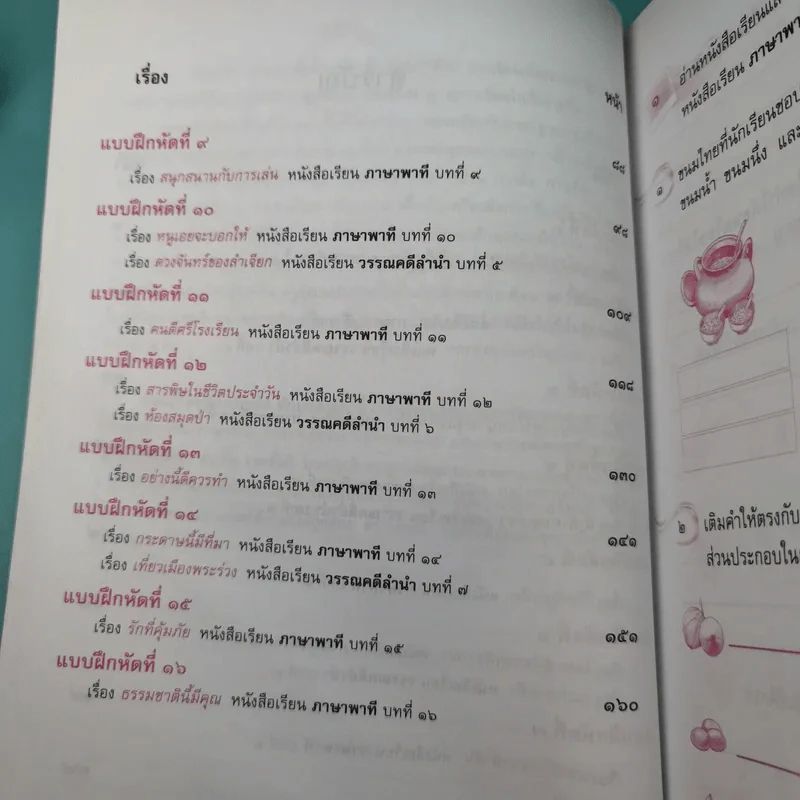 เรื่อง
หน้า
แบบฝึกหัดที่ ๙ ๘๘
เรื่อง สนุกสนานกับการเล่น หนังสือเรียน ภาษาพาที บทที่ ๙
แบบฝึกหัดที่ ๑๐ ๙๘
เรื่อง หนูเอยจะบอกให้ หนังสือเรียน ภาษาพาที บทที่ ๑๐
เรื่อง ดวงจันทร์ของลำเจียก หนังสือเรียน วรรณคดีลำนำ บทที่ ๕
แบบฝึกหัดที่ ๑๑ ๑๐๙
เรื่อง คนดีศรีโรงเรียน หนังสือเรียน ภาษาพาที บทที่ ๑๑
แบบฝึกหัดที่ ๑๒ ๑๑๘
เรื่อง สารพิษในชีวิตประจำวัน หนังสือเรียน ภาษาพาที บทที่ ๑๒
เรื่อง ห้องสมุดป่า หนังสือเรียน วรรณคดีลำนำ บทที่ ๖
แบบฝึกหัดที่ ๑๓ ๑๓๐
เรื่อง อย่างนี้ดีควรทำ หนังสือเรียน ภาษาพาที บทที่ ๑๓
แบบฝึกหัดที่ ๑๔ ๑๔๑
เรื่อง กระดาษนี้มีที่มา หนังสือเรียน ภาษาพาที บทที่ ๑๔
เรื่อง เที่ยวเมืองพระร่วง หนังสือเรียน วรรณคดีลำนำ บทที่ ๗
แบบฝึกหัดที่ ๑๕ ๑๕๑
เรื่อง รักที่คุ้มภัย หนังสือเรียน ภาษาพาที บทที่ ๑๕
แบบฝึกหัดที่ ๑๖ ๑๖๐
เรื่อง ธรรมชาตินี้มีคุณ หนังสือเรียน ภาษาพาที บทที่ ๑๖
๑ อ่านหนังสือเรียนและ
หนังสือเรียน ภาษาพา
๑ ขนมไทยที่นักเรียนชอบ
ขนมน้ำ ขนมนึ่ง และ
๒ เติมคำให้ตรงกับ
ส่วนประกอบใน